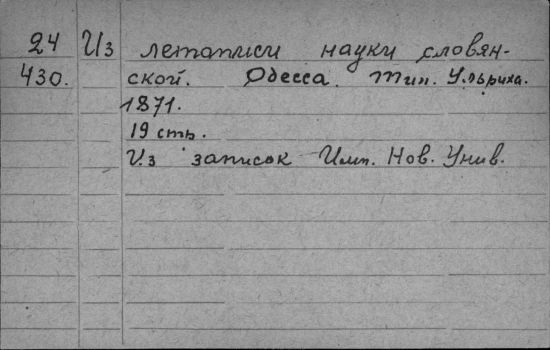 24 Из летописи науки словян-
430. ской. Одесса. Тип. Ульриха.
1871.
19 стр.
Из записок Имп. Нов. Унив.